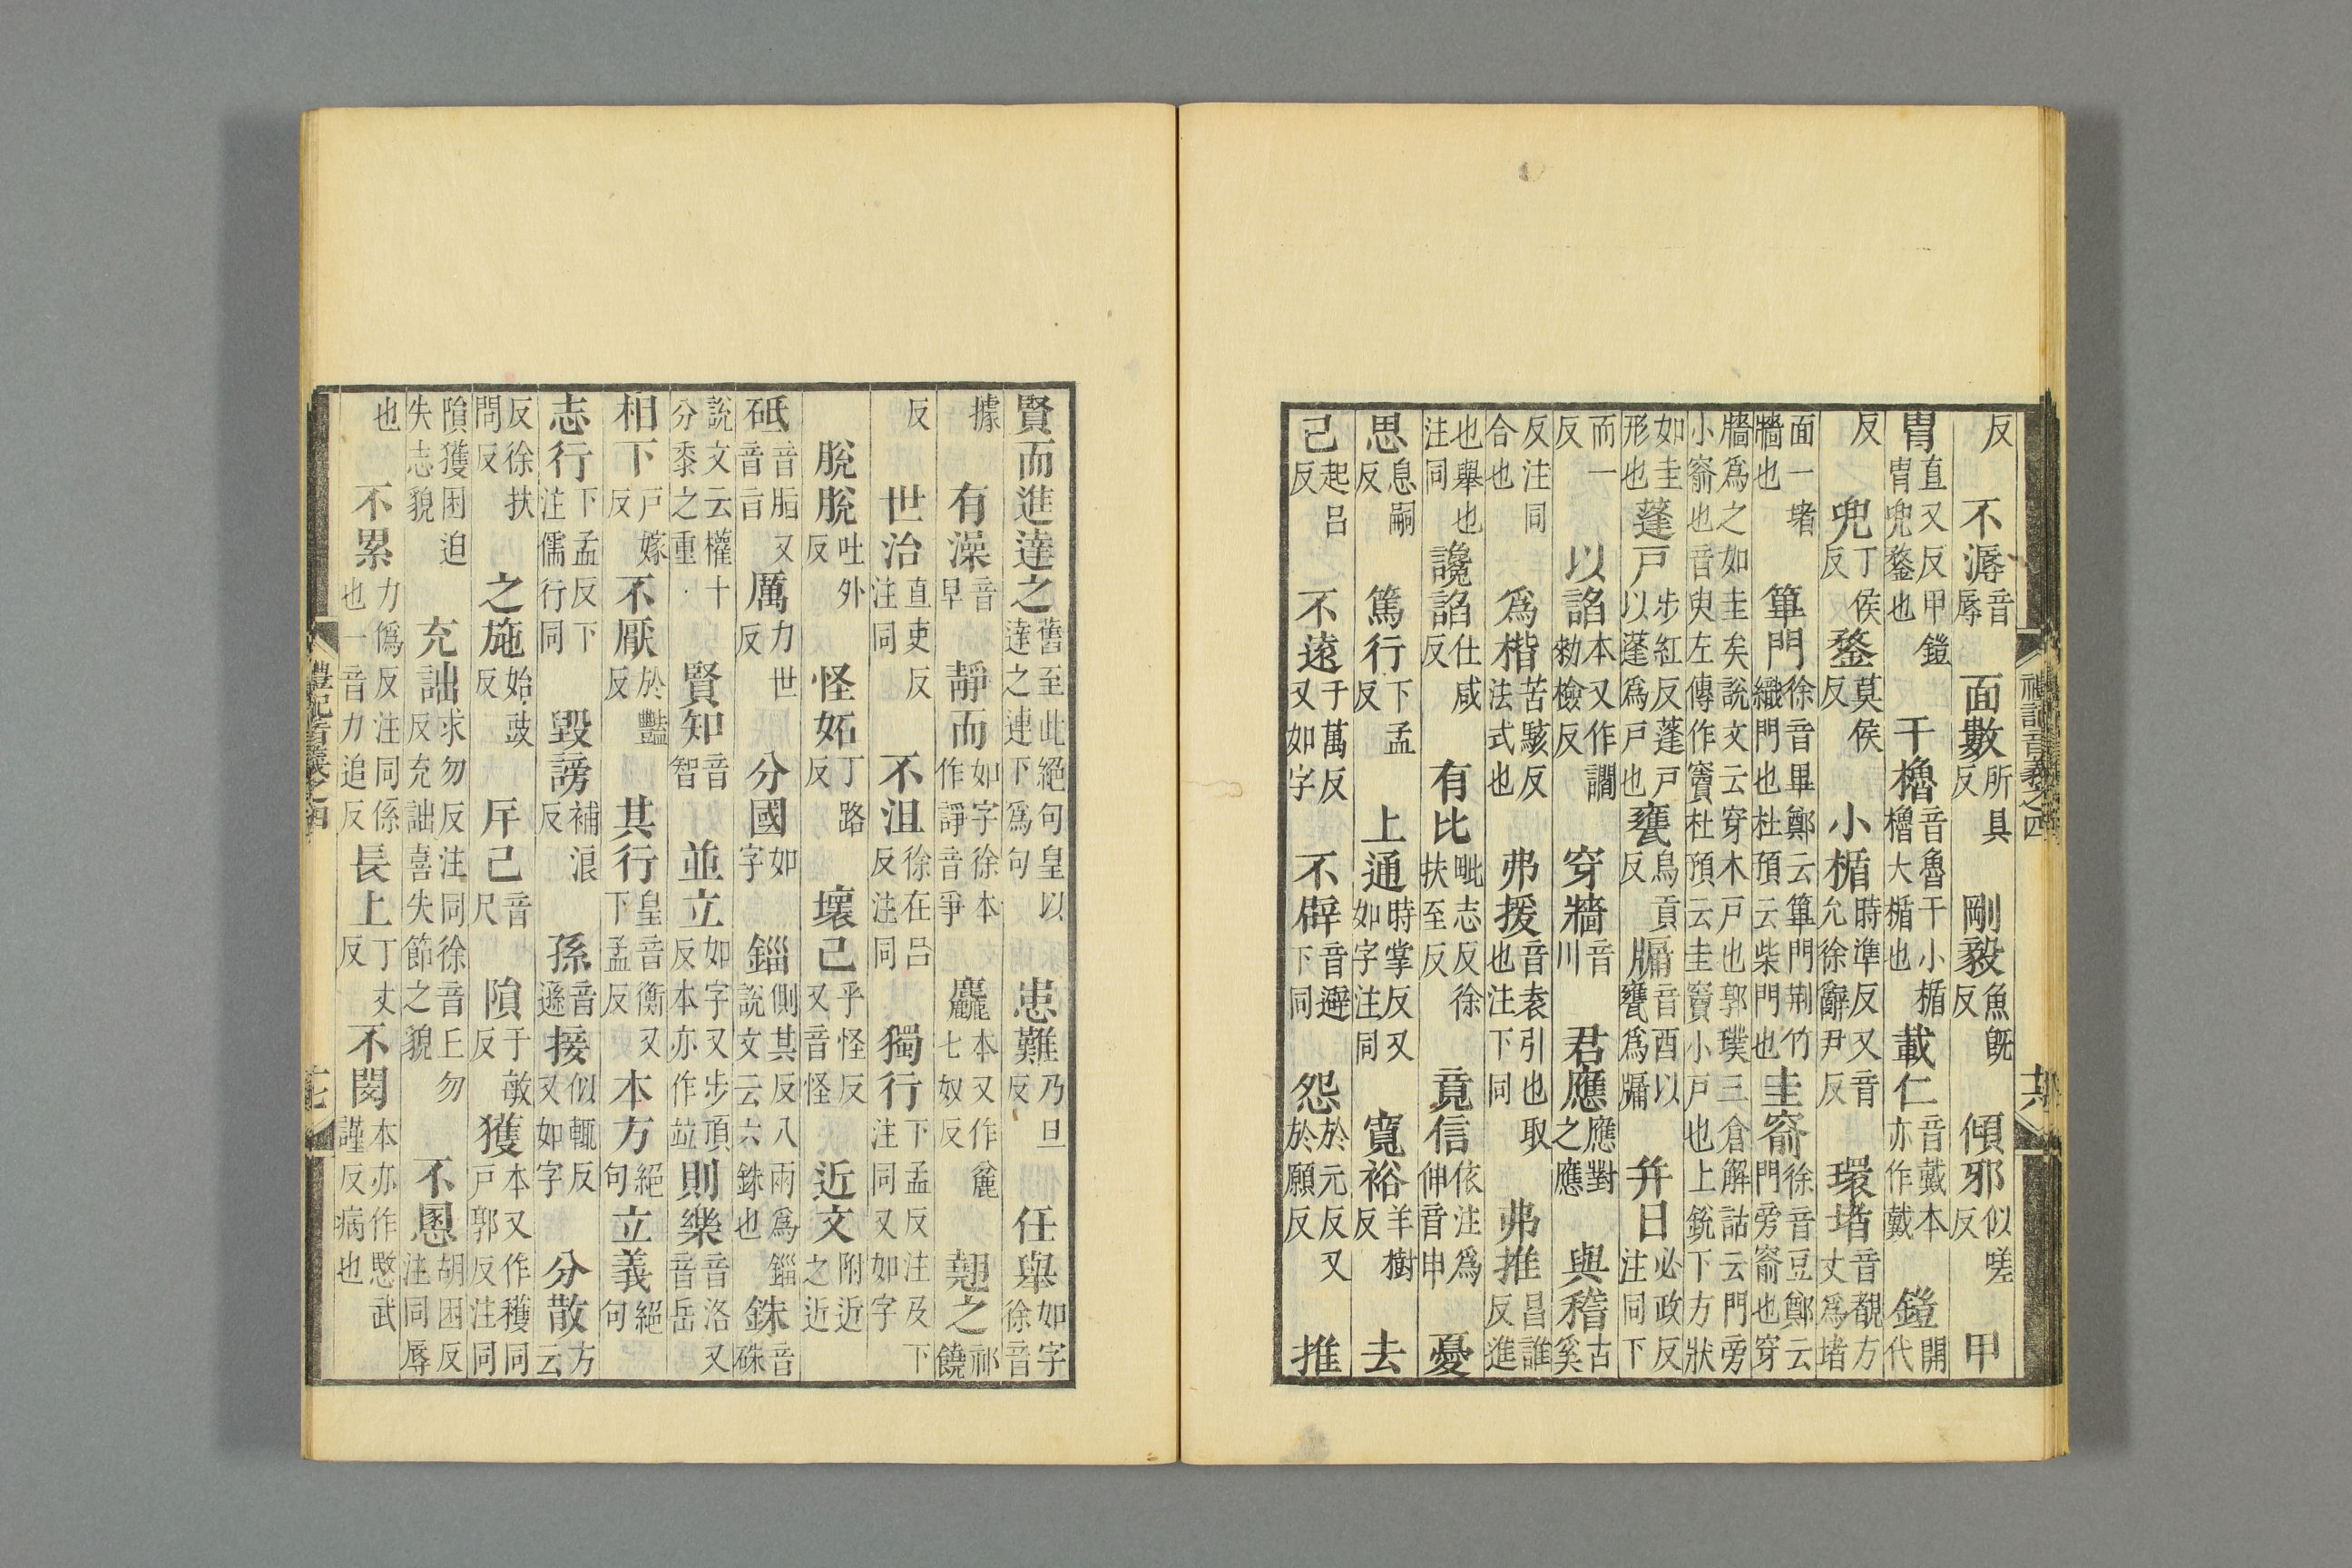 反 不溽音辱 面數所具反 剛毅魚旣反 傾邪似嗟反 甲
胄直又反甲鎧胄兜鍪也 干櫓音魯干小楯櫓大楯也 載仁音戴本亦作戴 鎧開代
反 兜丁侯反 鍪莫侯反 小楯時準反又音允徐辭尹反 環堵音覩方丈爲堵
面一堵牆也 篳門徐音畢鄭云篳門荆竹織門也杜預云柴門也 圭窬徐音豆鄭云門旁窬也穿
牆爲之如圭矣說文云穿木戶也郭璞三倉解詁云門旁小窬也音臾左傳作竇杜預云圭竇小戶也上銳下方狀
如圭形也 蓬戶步紅反蓬戶以蓬爲戶也 甕烏貢反 牖音酉以甕爲牖 幷日必政反注同下
而一反 以諂本又作讇勑檢反 穿牆音川 君應應對之應 與稽古奚
反注同合也 爲楷苦駭反法式也 弗援音袁引也取也注下同 弗推昌誰反進
也舉也注同 讒諂仕咸反 有比毗志反徐扶至反 竟信依注爲伸音申 憂
思息嗣反 篤行下孟反 上通時掌反又如字注同 寬裕羊樹反 去
己起呂反 不遠于萬反又如字 不辟音避下同 怨於元反又於願反 推
禮記音義之四
共
賢而進達之舊至此絕句皇以達之連下爲句 患難乃旦反 任舉如字徐音
據 有澡音早 靜而如字徐本作諍音爭 麤本又作麄七奴反 翹之祁饒
反 世治直吏反注同 不沮徐在呂反注同 獨行下孟反注及下注同又如字
脫脫吐外反 怪妬丁路反 壞己乎怪反又音怪 近文附近之近
砥音脂又音旨 厲力世反 分國如字 錙側其反八兩爲錙說文云六銖也 銖音硃
說文云權十分黍之重 賢知音智 並立如字又步頂反本亦作竝 則樂音洛又音岳
相下戶嫁反 不厭於豔反 其行皇音衡又下孟反 本方絕句 立義絕句
志行下孟反下注儒行同 毀謗補浪反 孫音遜 接似輒反又如字 分散方云
反徐扶問反 之施始豉反 斥己音尺 隕于敏反 獲本又作穫同戶郭反注同
隕獲困迫失志貌 充詘求勿反注同徐音丘勿反充詘喜失節之貌 不慁胡困反注同辱
也 不累力僞反注同係也一音力追反 長上丁丈反 不閔本亦作愍武謹反病也
禮記音義之四